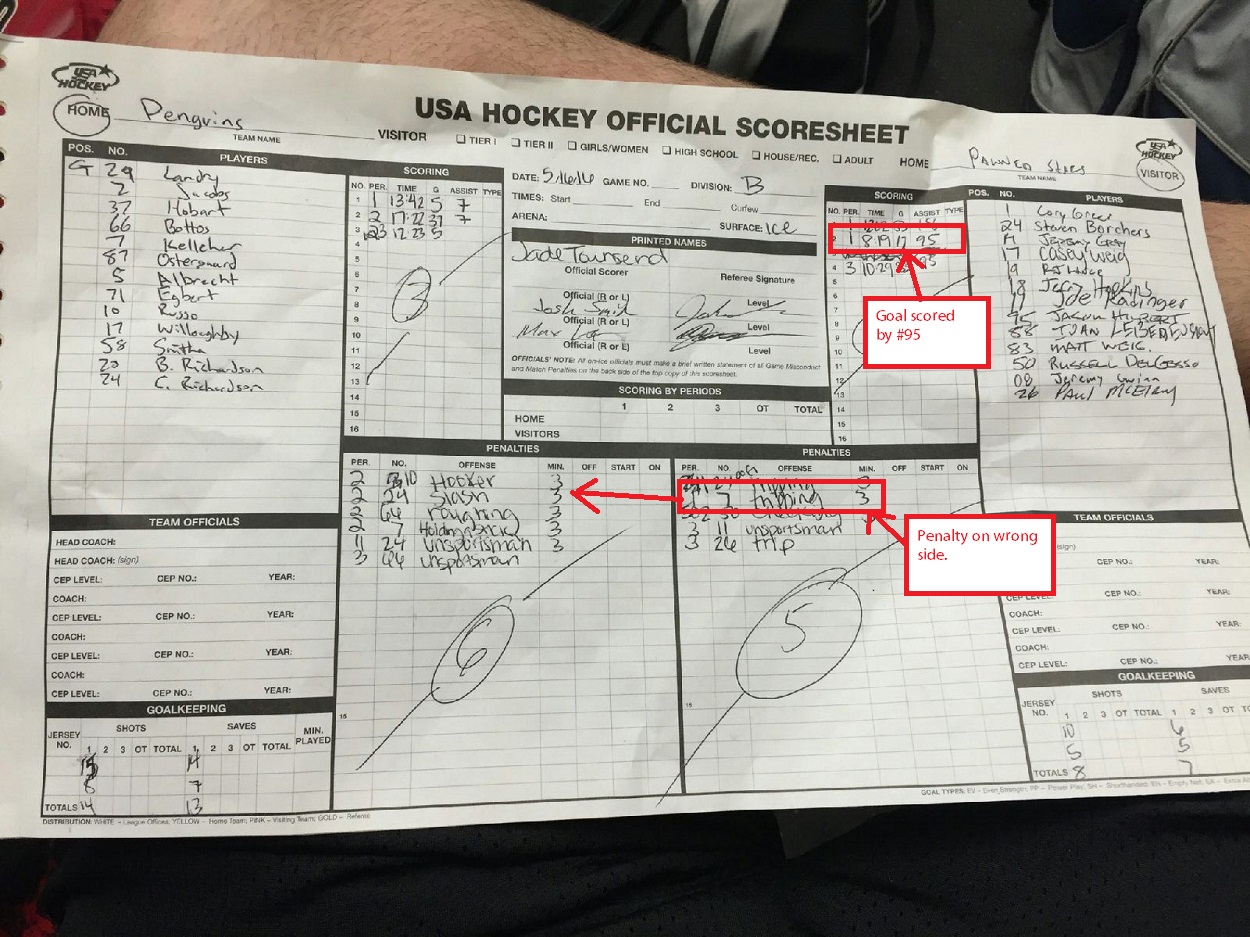 USA HOCKEY
HOME Penguins
TEAM NAME
VISITOR
USA HOCKEY OFFICIAL SCORESHEET
TIER I TIER II GIRLS/WOMEN HIGH SCHOOL HOUSE/REC. ADULT
HOME Pawned Stars
TEAM NAME
USA HOCKEY
VISITOR
POS. NO. PLAYERS
G 29 Landry
2 Jacobs
37 Hobart
66 Bottos
7 Kelleher
87 Ostergaard
5 Albrecht
71 Egbert
10 Russo
17 Willoughby
58 Smith
20 B. Richardson
24 C. Richardson
SCORING
NO. PER. TIME G ASSIST TYPE
1 1 13:42 5 7
2 2 17:27 37 7
3 3 12:23 5
4
5
6
7
8
9
10
11
12
13
14
15
16
3
DATE: 5.16.16 GAME NO. DIVISION: B
TIMES: Start End Curfew
ARENA: SURFACE: Ice
PRINTED NAMES
Jade Townsend
Official Scorer Referee Signature
Official (R or L) Level
Josh Smith
Official (R or L) Level
Max
Official (R or L) Level
OFFICIALS' NOTE: All on-ice officials must make a brief written statement of all Game Misconduct
and Match Penalties on the back side of the top copy of this scoresheet.
SCORING BY PERIODS
1 2 3 OT TOTAL
HOME
VISITORS
SCORING
NO. PER. TIME G ASSIST TYPE
1 8:19 17 95
4 3 10:29
5
6
7
8
9
10
11
12
13
14
15
16
Goal scored
by #95
POS. NO. PLAYERS
1 Cory Greer
24 Steven Borchers
Jeremy
17 Casey Weig
19
18 Jerry Hopkins
11 Joe Radinger
95 Jason
88
83 MATT WEIG
50 RUSSELL DELGESSO
08 Jeremy
26 PAUL McELROY
PENALTIES
PER. NO. OFFENSE MIN. OFF START ON
2 10 Hooker 3
2 24 Slash 3
2 66 roughing 3
2 7 Holding stick 3
11 24 unsportsman 3
3 66 unsportsman
15
6
PENALTIES
PER. NO. OFFENSE MIN. OFF START ON
tripping 3
1 7 tripping 3
3 11 unsportsman
3 26 trip
15
5
Penalty on wrong
side.
TEAM OFFICIALS
HEAD COACH:
HEAD COACH: (sign)
CEP LEVEL: CEP NO.: YEAR:
COACH:
CEP LEVEL: CEP NO.: YEAR:
COACH:
CEP LEVEL: CEP NO.: YEAR:
COACH:
CEP LEVEL: CEP NO.: YEAR:
TEAM OFFICIALS
(sign)
CEP NO.: YEAR:
CEP LEVEL: YEAR:
COACH:
CEP LEVEL: CEP NO.: YEAR:
COACH:
CEP LEVEL: CEP NO.: YEAR
GOALKEEPING
JERSEY NO. SHOTS SAVES MIN. PLAYED
1 2 3 OT TOTAL 1 2 3 OT TOTAL
15 14
8 7
TOTALS 14 13
GOALKEEPING
JERSEY NO. SHOTS SAVES
1 2 3 OT TOTAL 1 2 3 OT
10 6
5 5
TOTALS 8 7
DISTRIBUTION: WHITE – League Offices; YELLOW – Home Team; PINK – Visiting Team; GOLD – Referee
GOAL TYPES: EV – Even Strength, PP – Power Play, SH – Shorthanded, EN – Empty Net, EA – Extra